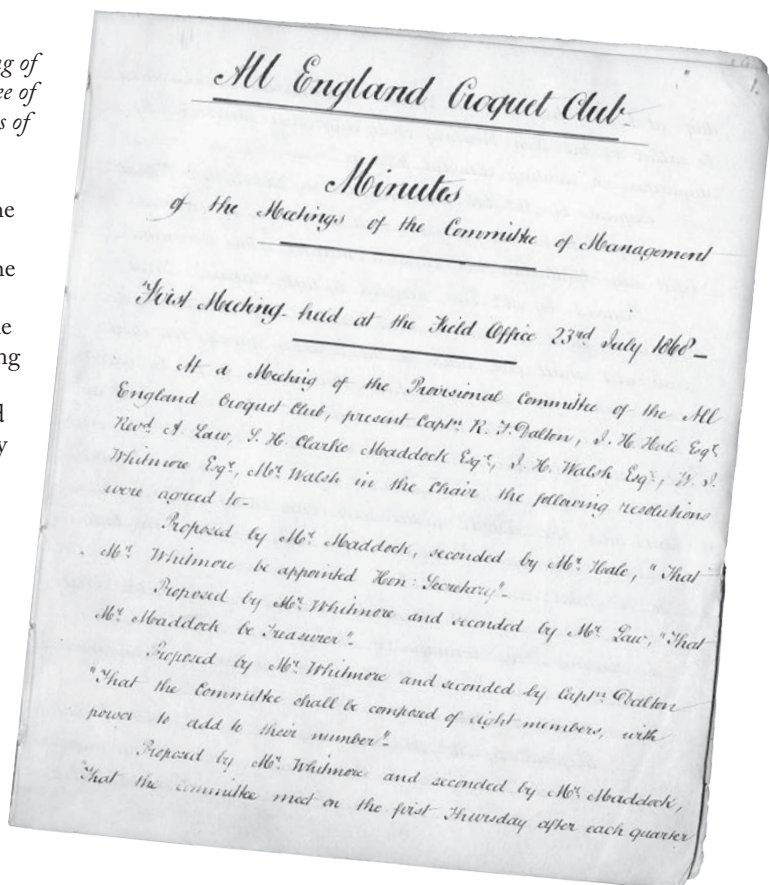 g of
ee of
s of
ne
ne
e
ng
d
y
1.
All England Croquet Club
Minutes
of the Meetings of the Committee of Management
First Meeting held at the Field Office 23rd July 1868 –
At a Meeting of the Provisional Committee of the All
England Croquet Club, present Captn R. F. Dalton, J. H. Hale Esqr,
Revd A. Law, S. H. Clarke Maddock Esqr, J. H. Walsh Esqr, W. J.
Whitmore Esqr, Mr Walsh in the Chair the following resolutions
were agreed to –
Proposed by Mr Maddock, seconded by Mr Hale, "That
Mr Whitmore be appointed Hon: Secretary" –
Proposed by Mr Whitmore and seconded by Mr Law, "That
Mr Maddock be Treasurer" –
Proposed by Mr Whitmore and seconded by Captn Dalton
"That the Committee shall be composed of eight members, with
power to add to their number" –
Proposed by Mr Whitmore and seconded by Mr Maddock,
"That the Committee meet on the first Thursday after each quarter